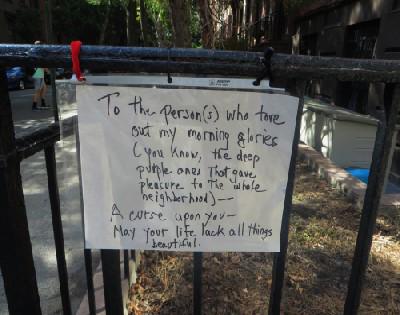 To the person(s) who tore
out my morning glories
(you know, the deep
purple ones that gave
pleasure to the whole
neighborhood)—
A curse upon you—
May your life lack all things
beautiful.